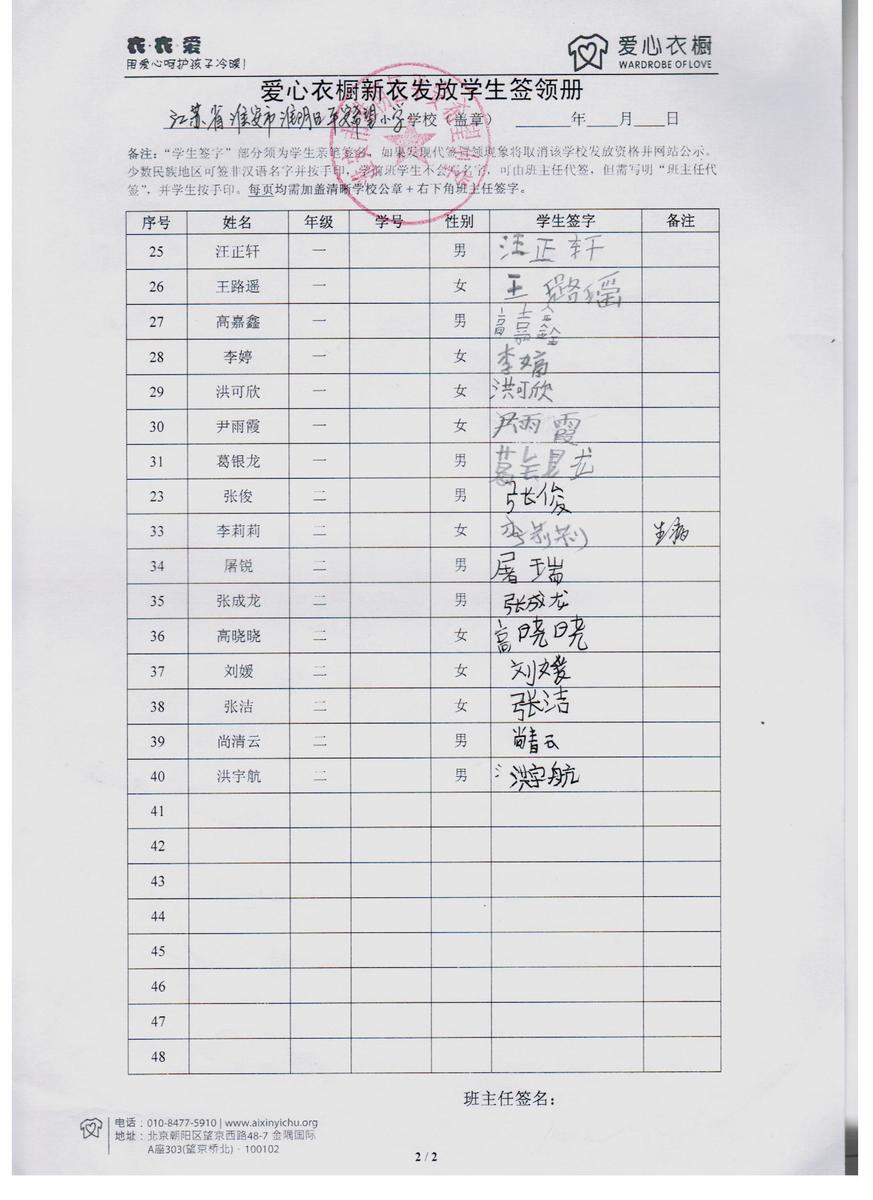 衣·衣·爱
用爱心呵护孩子冷暖!
爱心衣橱
WARDROBE OF LOVE
爱心衣橱新衣发放学生签领册
江苏省淮安市 小学学校(盖章) ______年____月____日
备注:“学生签字”部分须为学生亲笔签名,如果发现代签冒领现象将取消该学校发放资格并网站公示。
少数民族地区可签非汉语名字并按手印,学前班学生不会写名字,可由班主任代签,但需写明“班主任代
签”,并学生按手印。每页均需加盖清晰学校公章+右下角班主任签字。
序号 姓名 年级 学号 性别 学生签字 备注
25 汪正轩 一 男 汪正轩
26 王路遥 一 女 王璐瑶
27 高嘉鑫 一 男 高嘉鑫
28 李婷 一 女 李婷
29 洪可欣 一 女 洪可欣
30 尹雨霞 一 女 尹雨霞
31 葛银龙 一 男 葛 龙
23 张俊 二 男 张俊
33 李莉莉 二 女 李莉莉 生病
34 屠锐 二 男 屠瑞
35 张成龙 二 男 张成龙
36 高晓晓 二 女 高晓晓
37 刘媛 二 女 刘媛
38 张洁 二 女 张洁
39 尚清云 二 男 尚青云
40 洪宇航 二 男 洪宇航
41
42
43
44
45
46
47
48
班主任签名:
电话:010-8477-5910 | www.aixinyichu.org
地址:北京朝阳区望京西路48-7 金隅国际
A座303(望京桥北)· 100102
2 / 2